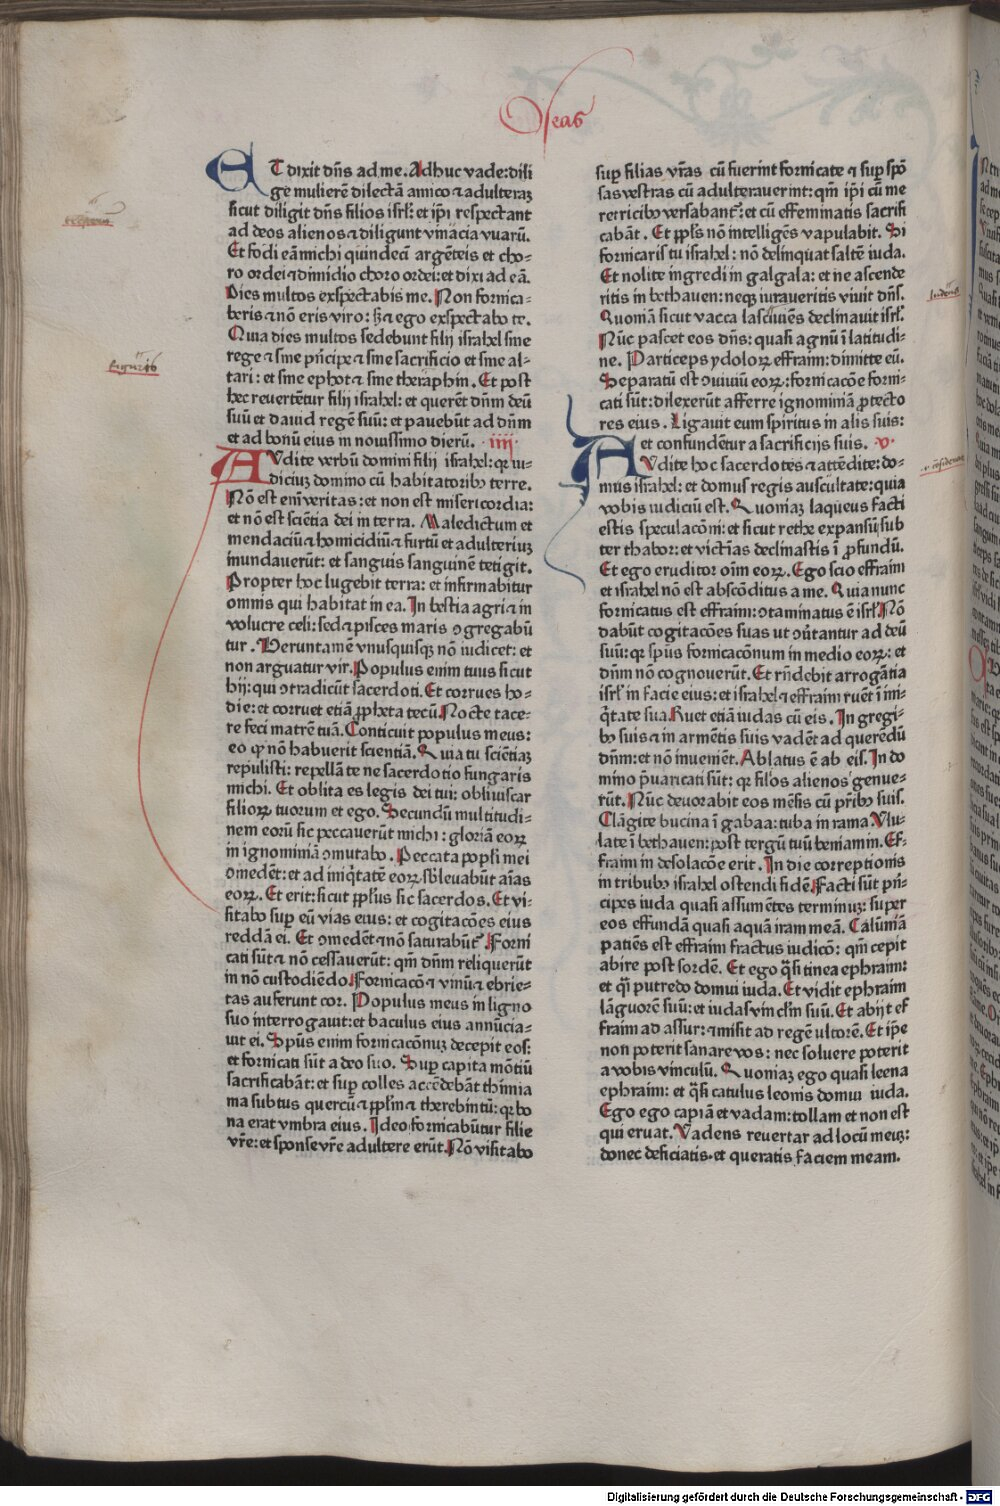 Oseas
ET dixit dñs ad me. Adhuc vade: dili
ge mulierē dilectā amico ⁊ adulteraꝫ
sicut diligit dñs filios isrł: et ip̄i respectant
ad deos alienos ⁊ diligunt vinacia vuarū.
Et fodi eā michi quindecī argēteis et cho-
ro ordei ⁊ dimidio choro ordei: et dixi ad eā.
Dies multos exspectabis me. Non fornica-
beris ⁊ nō eris viro: sꝫ ⁊ ego exspectabo te.
Quia dies multos sedebunt filij israhel sine
rege ⁊ sine prīcipe ⁊ sine sacrificio et sine al-
tari: et sine ephot ⁊ sine theraphin. Et post
hec reuertētur filij israhel: et querēt dñm deū
suū et dauid regē suū: et pauebūt ad dñm
et ad bonū eius in nouissimo dierū. iiii.
AVdite verbū domini filij israhel: qꝛ iu-
diciuꝫ domino cū habitatoribꝰ terre.
Nō est enī veritas: et non est misericordia:
et nō est sciētia dei in terra. Maledictum et
mendaciū ⁊ homicidiū ⁊ furtū et adulteriuꝫ
inundauerūt: et sanguis sanguinē tetigit.
Propter hoc lugebit terra: et infirmabitur
omnis qui habitat in ea. In bestia agri ⁊ in
volucre celi: sed ⁊ pisces maris ꝯgregabū
tur. Veruntamē vnusquisqꝫ nō iudicet: et
non arguatur vir. Populus enim tuus sicut
hij: qui ꝯtradicūt sacerdoti. Et corrues ho-
die: et corruet etiā ꝓpheta tecū. Nocte tace-
re feci matrē tuā. Conticuit populus meus:
eo ꝙ nō habuerit scientiā. Quia tu sciētiaꝫ
repulisti: repellā te ne sacerdotio fungaris
michi. Et oblita es legis dei tui: obliuiscar
filioꝝ tuorum et ego. Secundū multitudi-
nem eorū sic peccauerūt michi: gloriā eoꝝ
in ignominiā ꝯmutabo. Peccata popli mei
ꝯmedēt: et ad iniq̄tatē eoꝝ sb̄leuabūt aīas
eoꝝ. Et erit: sicut pp̄lus sic sacerdos. Et vi-
sitabo sup eū vias eius: et cogitacōes eius
reddā ei. Et ꝯmedēt ⁊ nō saturabūt̄. Forni
cati sūt ⁊ nō cessauerūt: qm̄ dñm reliquerūt
in nō custodiēdo. Fornicacō ⁊ vinū ⁊ ebrie-
tas auferunt cor. Populus meus in ligno
suo interrogauit: et baculus eius annūcia-
uit ei. Spūs enim fornicacōnuꝫ decepit eos:
et fornicati sūt a deo suo. Sup capita mōtiū
sacrificabāt: et sup colles accēdebāt thimia
ma subtus quercū ⁊ pp̄lm ⁊ therebintū: qꝛ bo
na erat vmbra eius. Ideo fornicabūtur filie
vr̄e: et sponse vr̄e adultere erūt. Nō visitabo
sup filias vr̄as cū fuerint fornicate ⁊ sup spō
sas vestras cū adulterauerint: qm̄ ip̄i cū me
retricibꝰ versabant̄: et cū effeminatis sacrifi
cabāt. Et pp̄ls nō intelligēs vapulabit. Si
fornicaris tu israhel: nō delinquat saltē iuda.
Et nolite ingredi in galgala: et ne ascende
ritis in bethauen: neqꝫ iuraueritis viuit dñs.
Quoniā sicut vacca lasciuiēs declinauit isrł.
Nūc pascet eos dñs: quasi agnū ī latitudi-
ne. Particeps ydoloꝝ effraim: dimitte eū.
Separatū est ꝯuiuiū eoꝝ: fornicacōe forni-
cati sūt: dilexerūt afferre ignominiā ꝓtecto
res eius. Ligauit eum spiritus in alis suis:
et confundētur a sacrificijs suis. v.
AVdite hoc sacerdotes ⁊ attēdite: do-
mus israhel: et domus regis auscultate: quia
vobis iudiciū est. Quoniaꝫ laqueus facti
estis speculacōni: et sicut rethe expansū sub
ter thabor: et victīas declinastis ī ꝓfundū.
Et ego eruditor oīm eoꝝ. Ego scio effraim
et israhel nō est abscōditus a me. Quia nunc
fornicatus est effraim: ꝯtaminatus ē isrł. Nō
dabūt cogitacōes suas ut ꝯū̄tantur ad deū
suū: qꝛ spūs fornicacōnum in medio eoꝝ: et
dñm nō cognouerūt. Et rñdebit arrogātia
isrł in facie eius: et israhel ⁊ effraim ruēt ī ini-
q̄tate sua. Ruet etiā iudas cū eis. In gregi-
bꝰ suis ⁊ in armētis suis vadēt ad querēdū
dñm: et nō inuenīēt. Ablatus ē ab eis. In do
mino p̄uaricati sūt: qꝛ filios alienos genue-
rūt. Nūc deuorabit eos mēsis cū pr̄ibꝰ suis.
Clāgite bucina ī gabaa: tuba in rama. Vlu-
late ī bethauen: post tergū tuū beniamin. Ef-
fraim in desolacōe erit. In die correptionis
in tribubꝰ israhel ostendi fidē. Facti sūt prī-
cipes iuda quasi assumētes terminuꝫ: super
eos effundā quasi aquā iram meā. Calūniā
patiēs est effraim fractus iudicō: qm̄ cepit
abire post sordē. Et ego q̄si tinea ephraim:
et q̄si putredo domui iuda. Et vidit ephraim
lāguorē suū: et iudas vinclm̄ suū. Et abijt ef
fraim ad assur: ⁊ misit ad regē vltorē. Et ip̄e
non poterit sanare vos: nec soluere poterit
a vobis vinculū. Quoniaꝫ ego quasi leena
ephraim: et q̄si catulus leonis domui iuda.
Ego ego capiā et vadam: tollam et non est
qui eruat. Vadens reuertar ad locū meuꝫ:
donec deficiatis. et queratis faciem meam.
Digitalisierung gefördert durch die Deutsche Forschungsgemeinschaft - DFG